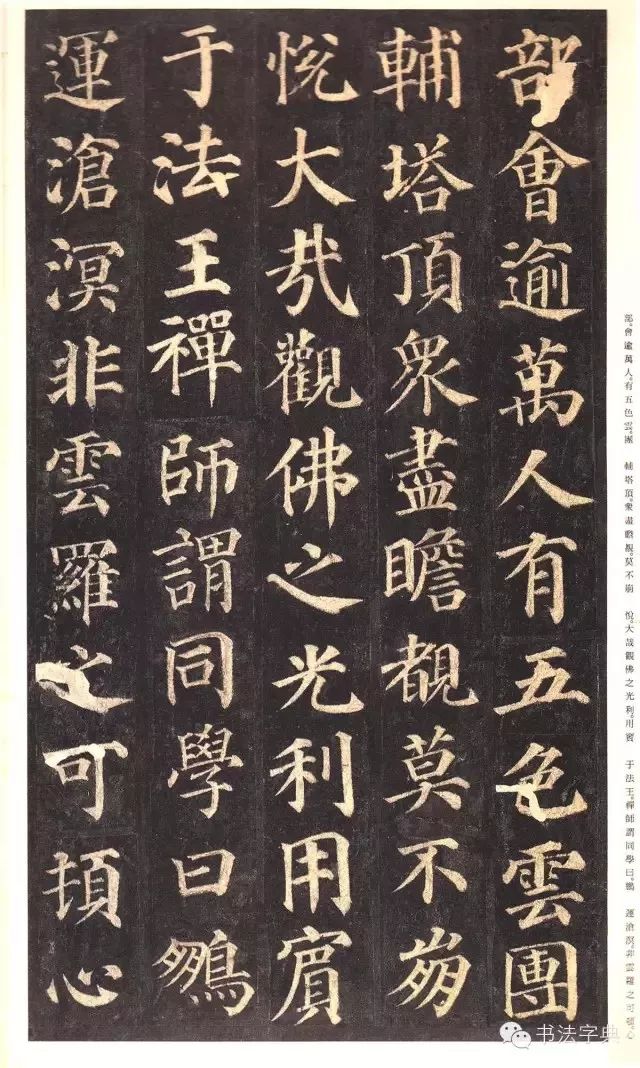 部會逾萬人有五色雲團
輔塔頂眾盡瞻覩莫不崩
悅大哉觀佛之光利用賓
于法王禪師謂同學曰鵬
運滄溟非雲羅之可頓心
部會逾萬人。有五色雲。團　輔塔頂。衆盡瞻覩。莫不崩　悅。大哉觀佛之光。利用賓　于法王。禪師謂同學曰。鵬　運滄溟。非雲羅之可頓。心
书法字典